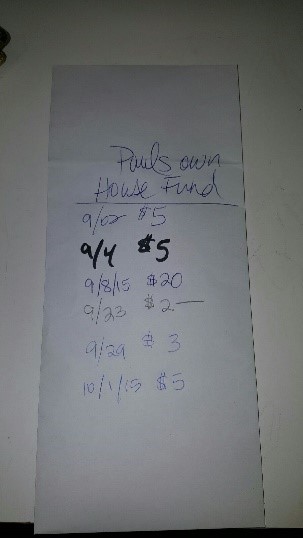 Pauls own
House Fund
9/02 $5
9/4 $5
9/8/15 $20
9/23 $2—
9/29 $3
10/1/15 $5